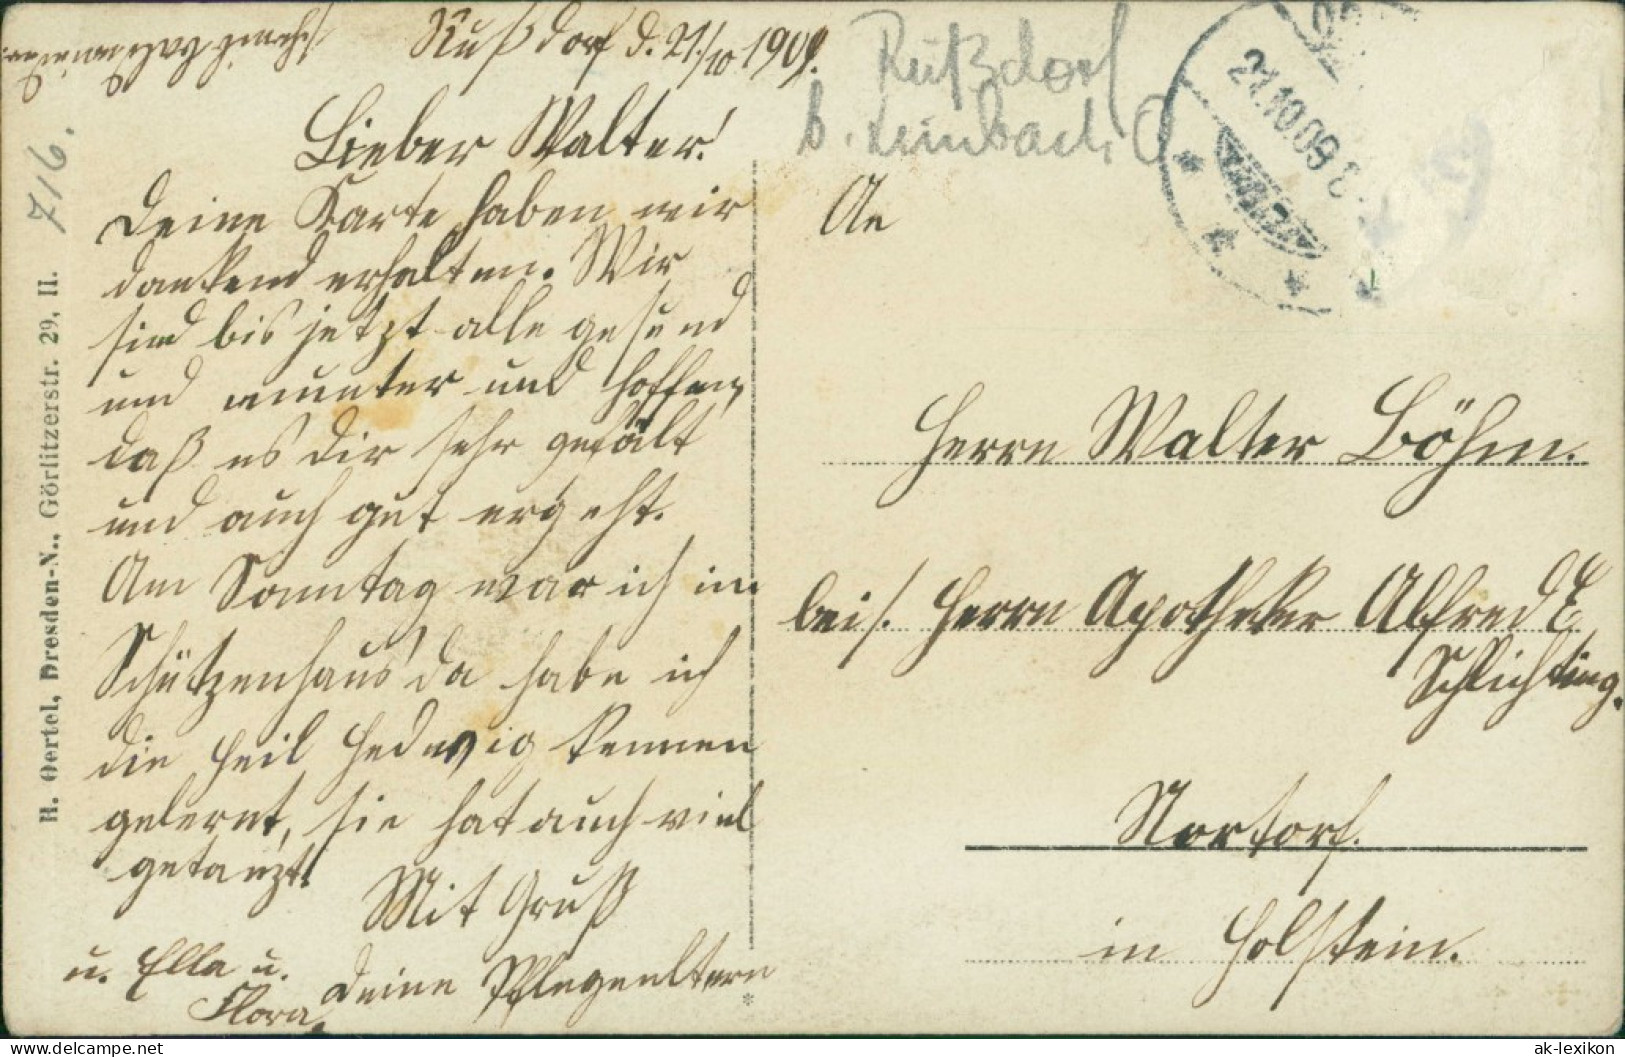 Rußdorf d. 21./10 1909.
Lieber Walter!
Deine Karte haben wir
dankend erhalten. Wir
sind bis jetzt alle gesund
und munter und hoffen,
daß es dir sehr gefält
und auch gut ergeht.
Am Sonntag war ich im
Schützenhaus da habe ich
die Heil Hedwig kennen
gelernt, sie hat auch viel
getanzt.
Mit Gruß
Deine Pflegeeltern
u. Ella u.
Flora.
716.
H. Oertel, Dresden-N., Görlitzerstr. 29, II.
Rußdorf
b. Limbach
21.10.09
An
Herrn Walter Böhm.
bei/. Herrn Apotheker Alfred
Schlichting.
Nortorf.
in Holstein.
https://www.delcampe.net
ak-lexikon